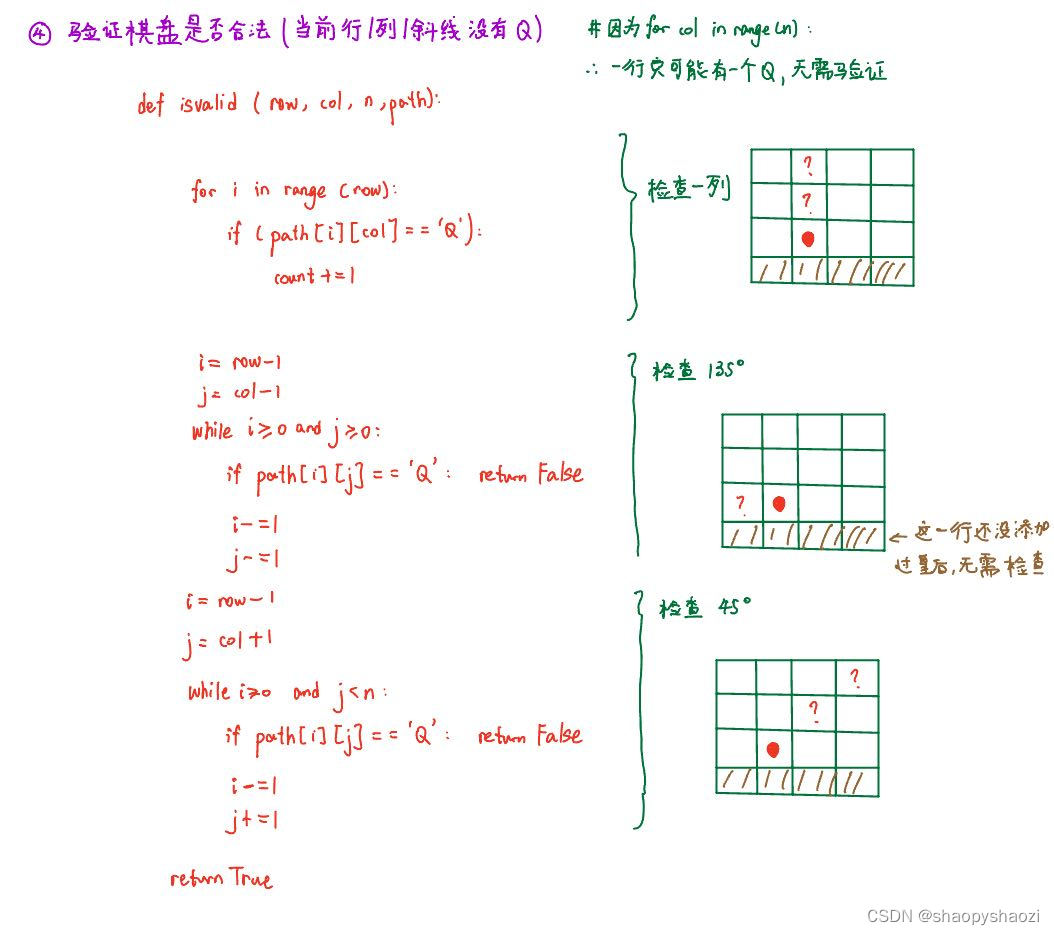 ④ 验证棋盘是否合法 (当前行/列/斜线没有Q)
#因为for col in range(n):
∴ 一行只可能有一个Q, 无需验证
def isvalid (row, col, n, path):
for i in range (row):
if (path[i][col] == 'Q'):
count += 1
检查一列
?
?
i = row-1
j = col-1
while i≥0 and j≥0:
if path[i][j] == 'Q': return False
i-=1
j-=1
检查 135°
?
← 这一行还没添加
过皇后,无需检查
i = row-1
j = col+1
while i≥0 and j<n:
if path[i][j] == 'Q': return False
i-=1
j+=1
检查 45°
?
?
return True
CSDN @shaopyshaozi